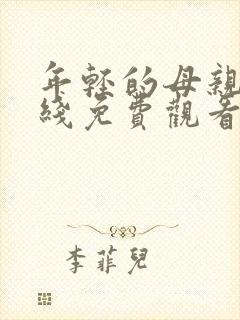 年輕的母親
綫免費觀看
李菲兒